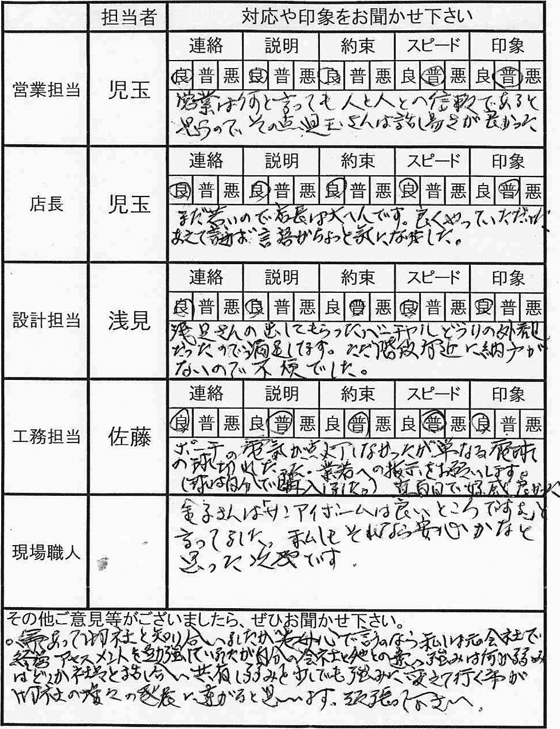 担当者 対応や印象をお聞かせ下さい
営業担当 児玉
連絡 説明 約束 スピード 印象
良 普 悪 良 普 悪 良 普 悪 良 普 悪 良 普 悪
営業は何と言っても人と人との信頼であると
思うので その点児玉さんは話し易さが良かった
店長 児玉
連絡 説明 約束 スピード 印象
良 普 悪 良 普 悪 良 普 悪 良 普 悪 良 普 悪
まだ若いので店長は大へんです。良くやっていただけ
あえて 言語がちょっと気になりました。
設計担当 浅見
連絡 説明 約束 スピード 印象
良 普 悪 良 普 悪 良 普 悪 良 普 悪 良 普 悪
浅見さんの出してもらった どうりの外観
だったので満足してます。ただ階段付近に納戸が
ないので不便でした。
工務担当 佐藤
連絡 説明 約束 スピード 印象
良 普 悪 良 普 悪 良 普 悪 良 普 悪 良 普 悪
ポーチの電気が点灯しなかったが単なる電球
の球切れだった 業者への指示をお願いします。
(球は自分で購入しました。) 真面目で好感
現場職人
金子さんは「サンアイホームは良いところですよ」と
言ってました。私もそれなら安心かなと
思った次第です。
その他ご意見等がございましたら、ぜひお聞かせ下さい。
。縁あって御社と知り合いましたが老婆心で 私は元会社で
アセスメントを勉強していたが自分の会社と他との違い、強みは何か弱み
はどこか社員と話し合い共有し弱みを少しでも強みに変えて行く事が
御社の 発展に繋がると思います。頑張って下さい。